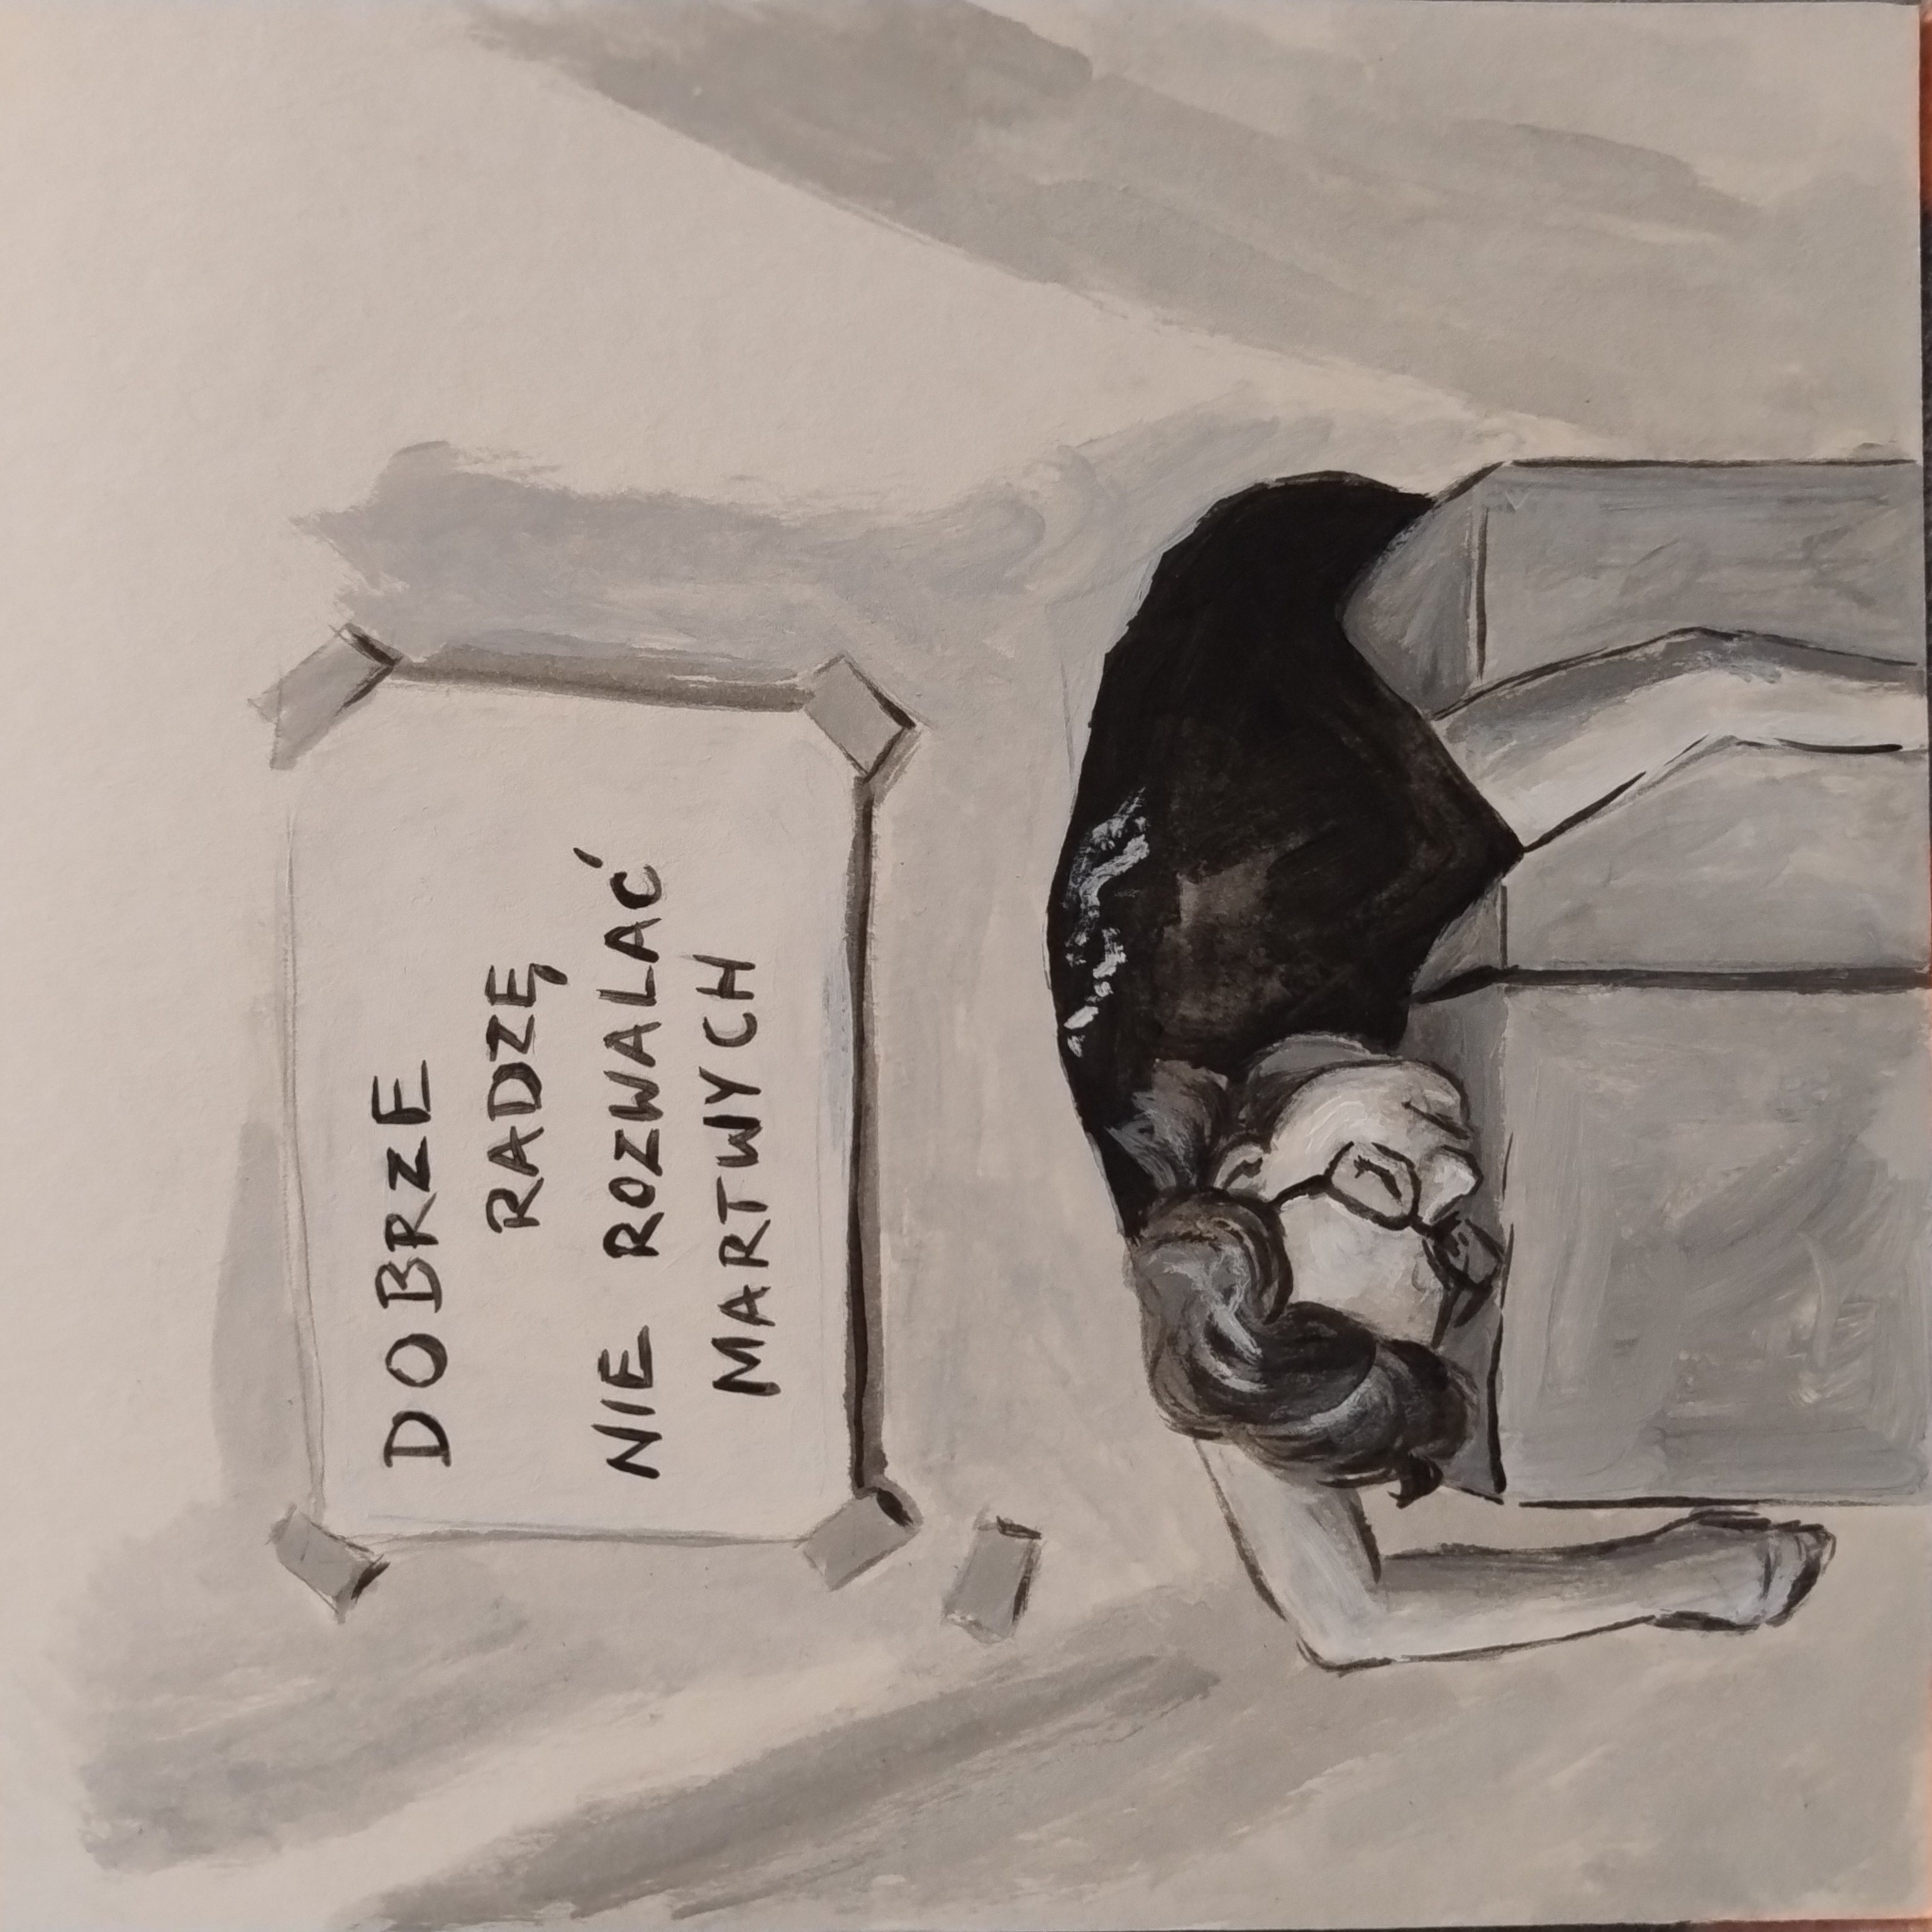 DOBRZE
RADZĘ
NIE ROZWALAĆ
MARTWYCH